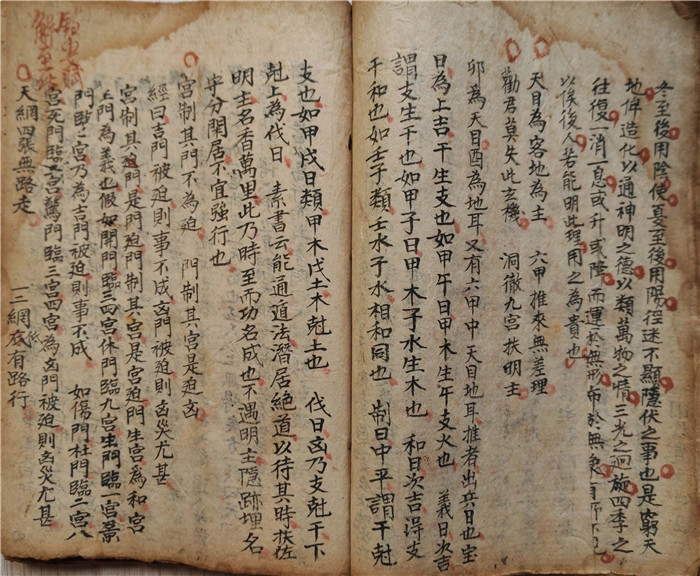 冬至後用陰使夏至後用陽徑迷不顯隱伏之事也是窮天
地俾造化以通神明之德以類萬物之情三光之迴施四季之
往復一消一息或升或降而運於無形布於無
以俟後人若能明此理用之為貴也
天目為客地為主　六甲推來無差理
勸君莫失此玄機　洞徹九宮扶明主
卯為天目酉為地耳又有六甲中天目地耳推者出兵日也宝
日為上吉干生支也如甲午日甲木生午支火也　義日次吉
謂支生干也如甲子日甲木子水生木也　和日次吉淂支
干和也如壬子類壬水子水相和同也　制日中平謂干尅
支也如甲戌日類甲木戊土木尅土也　伐日凶乃支尅干下
尅上為伐日　素書云能通道法潛居絶道以待其時扶佐
明主名香萬里此乃時至而功名成也不遇明主隱跡埋名
守分閑居不宜強行也
宮制其門不為迫　門制其宮是迫凶
經曰吉門被迫則事不成凶門被迫則凶災尤甚
宮制其迫門是門迫門制其宮是宮迫門生宮為和宮
上門為義也假如開門臨三四宮休門臨九宮生門臨一宮景
門臨之宮乃為吉門被迫則事不成　如傷門杜門臨二宮八
宮死門臨之宮驚門臨三宮四宮為凶門被迫則凶災尤甚
天網四張無路走　一二網低有路行